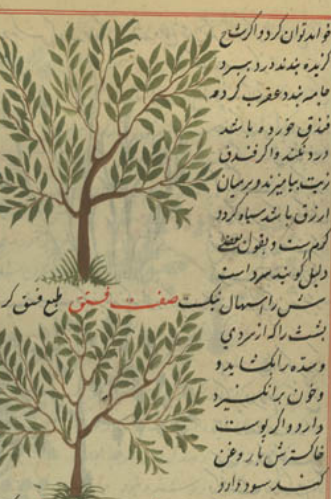 خواهد توان کرد و اگر شاخ
گزیده بندند درد ببرد
جامه بندد عقرب کرده
فندق خورده باشد
درد نکند و اگر فندق
زیت بیامیزند و بر میان
ازرق باشد سیاه گردد
گرمست و بقول بعضی
دلیل گویند سرد است
سس را سهال نیکست صفت فستق طبع فستق کر
پشت را که از سردی
و سده را بگشاید و
و خون برانگیزد
دارد و اگر پوست
خاکسترش با روغن
کنند سود دارد